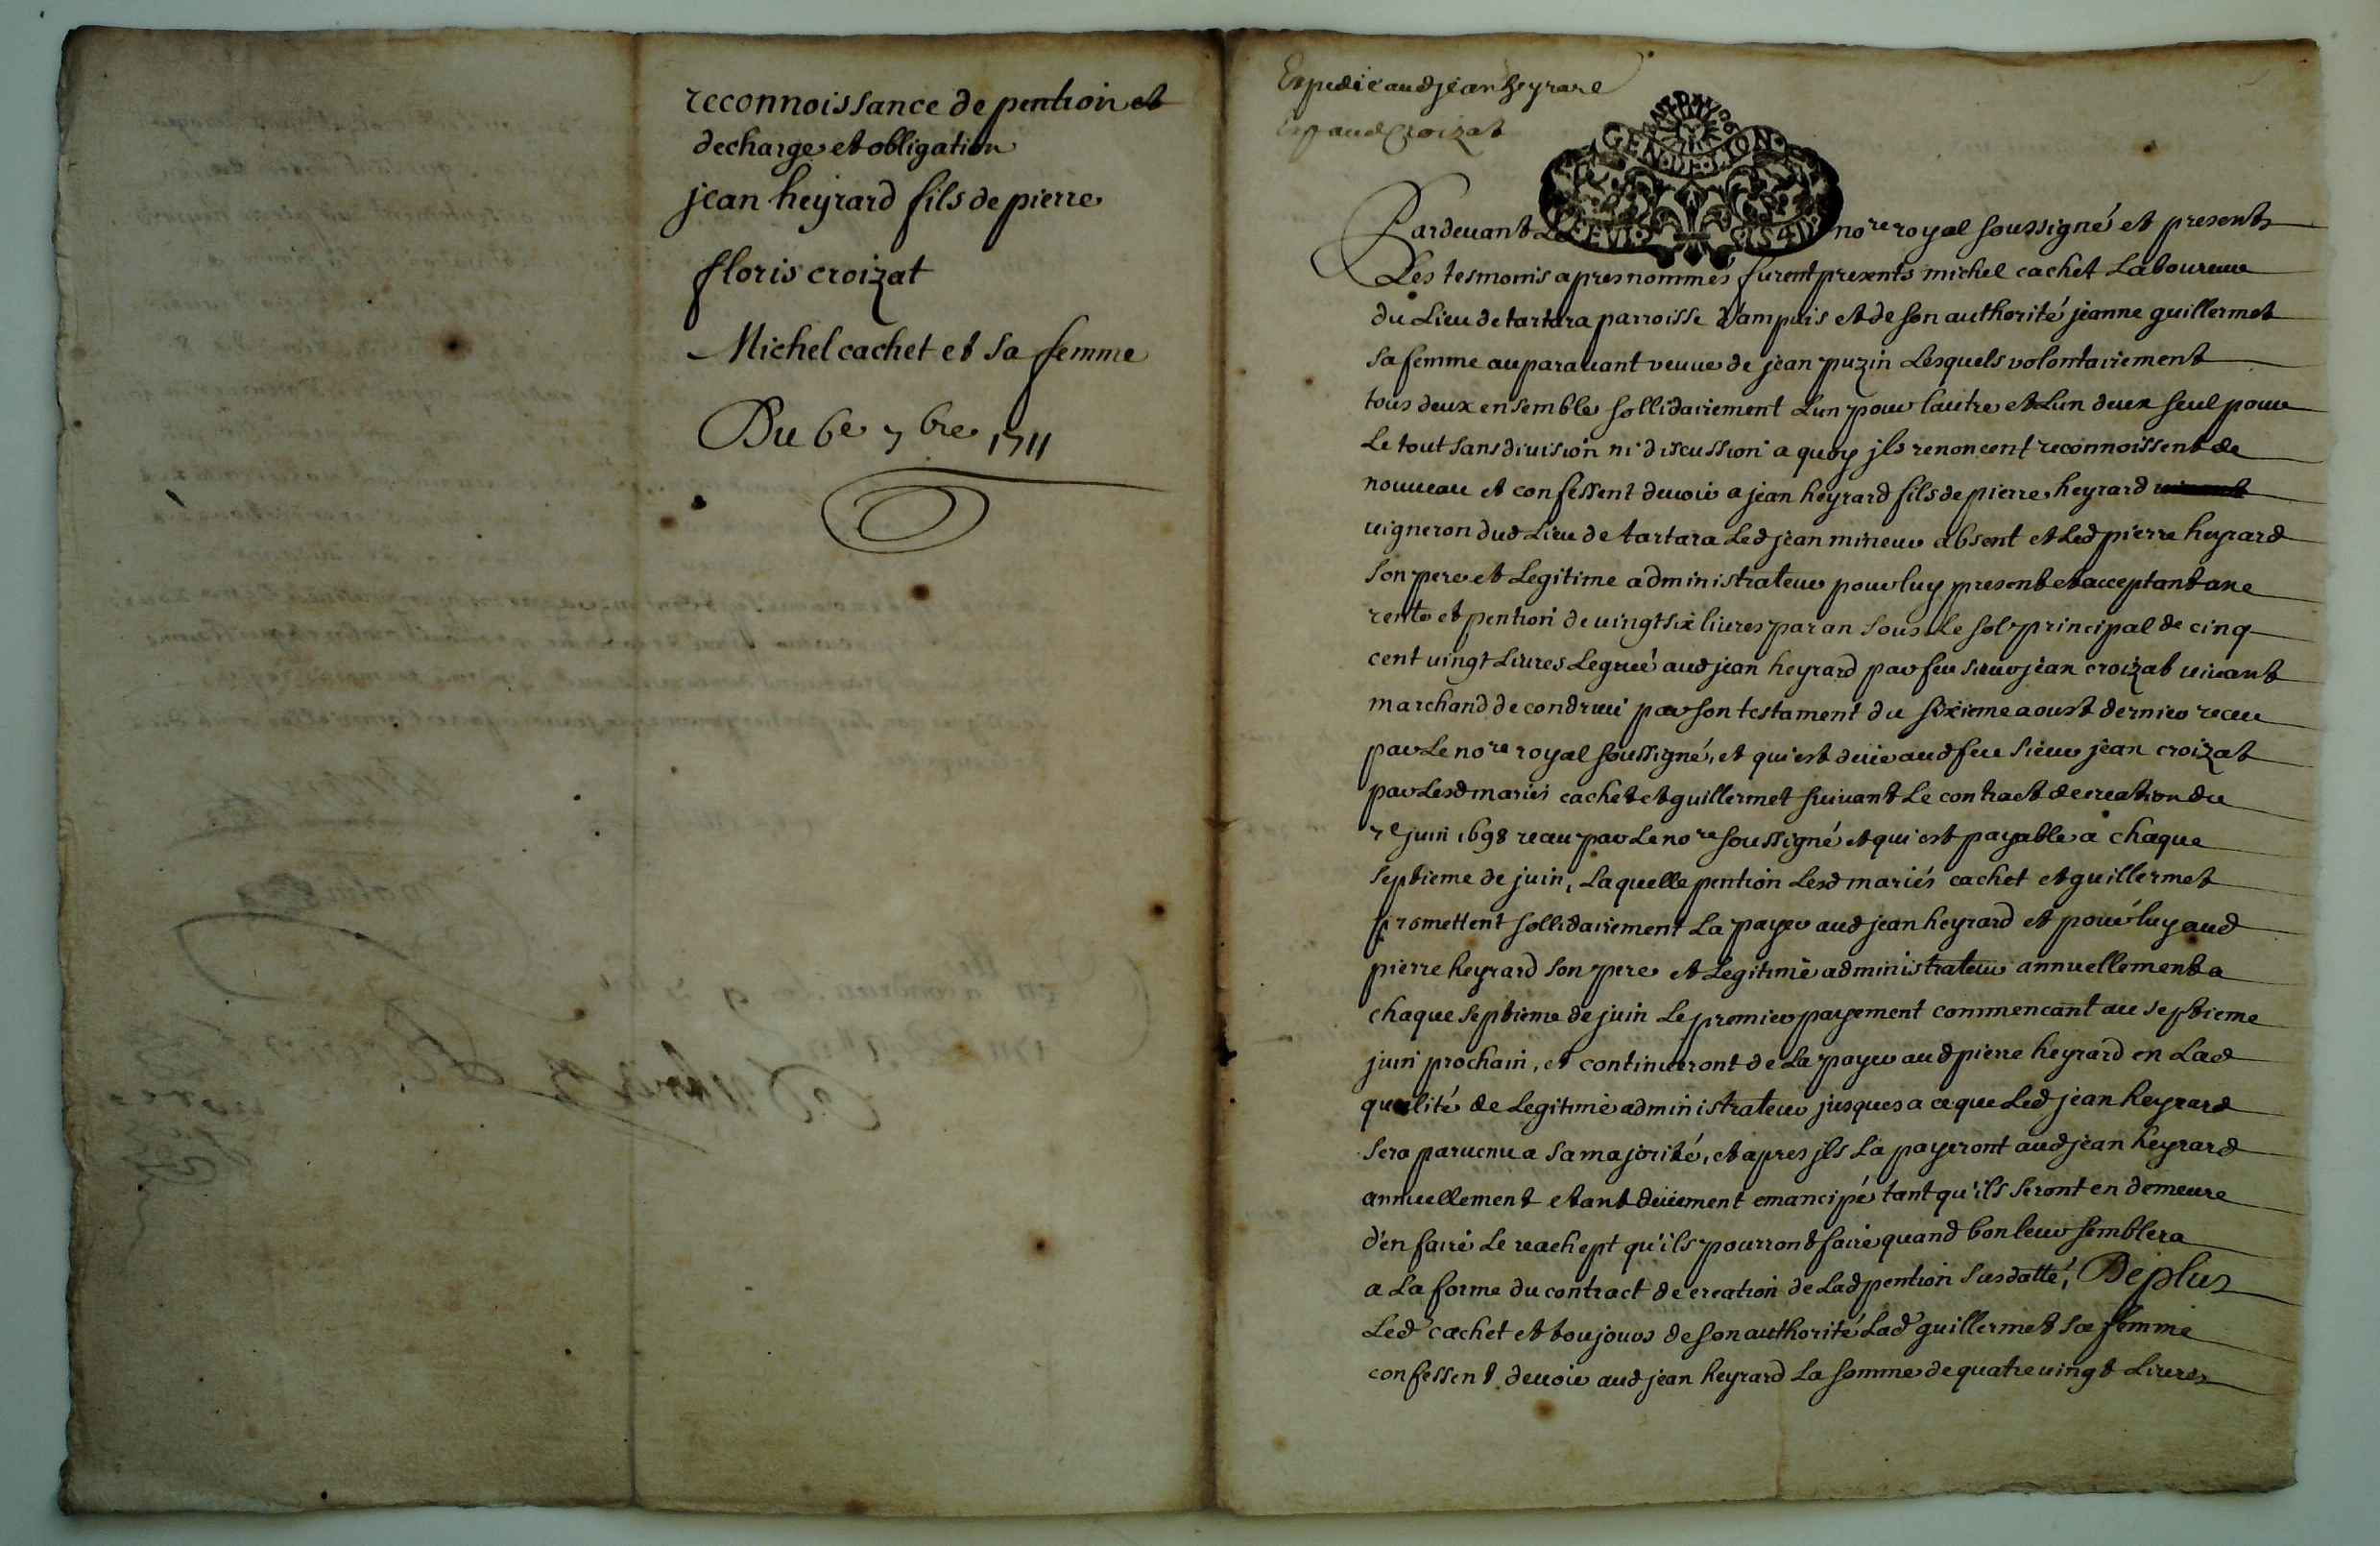 reconnoissance de pention et
decharge et obligation
jean heyrard fils de pierre
floris croizat
Michel cachet et sa femme
Du 6e 7bre 1711
Expedié aud jean heyrard
aud Croizat
GEN DE MON
Pardeuant Le nore royal soussigné et presents
Les tesmoins apres nommés furent presents michel cachet Laboureur
du Lieu de tartara parroisse d'ampuis et de son authorité jeanne guillermet
sa femme auparauant veuue de jean puzin Lesquels volontairement
tous deux ensemble sollidairement L'un pour l'autre et L'un deux seul pour
Le tout sans diuision ni discussion a quoy jls renoncent reconnoissent de
nouueau et confessent deuoir a jean heyrard fils de pierre heyrard
uigneron dud Lieu de tartara Led jean mineur absent et Led pierre heyrard
son pere et Legitime administrateur pour luy present et acceptant une
rente et pention de uingt six liures par an sous Le sol principal de cinq
cent uingt Liures Legué aud jean heyrard par feu sieur jean croizat uiuant
marchand de condrieu par son testament du sixieme aoust dernier receu
par Le nore royal soussigné, et qui est deüe aud feu sieur jean croizat
par Lesd mariés cachet et guillermet suiuant Le contract de creation du
7e juin 1698 receu par Le nore soussigné et qui est payable a chaque
septieme de juin, Laquelle pention Lesd mariés cachet et guillermet
promettent sollidairement La payer aud jean heyrard et pour luy aud
pierre heyrard son pere et Legitime administrateur annuellement a
chaque septieme de juin Le premier payement commencant au septieme
juin prochain, et continueront de La payer aud pierre heyrard en Lad
qualité de Legitime administrateur jusques a ce que Led jean heyrard
sera paruenu a sa majorité, et apres jls La payeront aud jean heyrard
annuellement etant deüement emancipé tant qu'ils seront en demeure
d'en faire Le reachept qu'ils pourront faire quand bon leur semblera
a La forme du contract de creation de Lad pention susdatté, De plus
Led cachet et toujours de son authorité Lad guillermet sa femme
confessent deuoir aud jean heyrard La somme de quatre uingt Liures